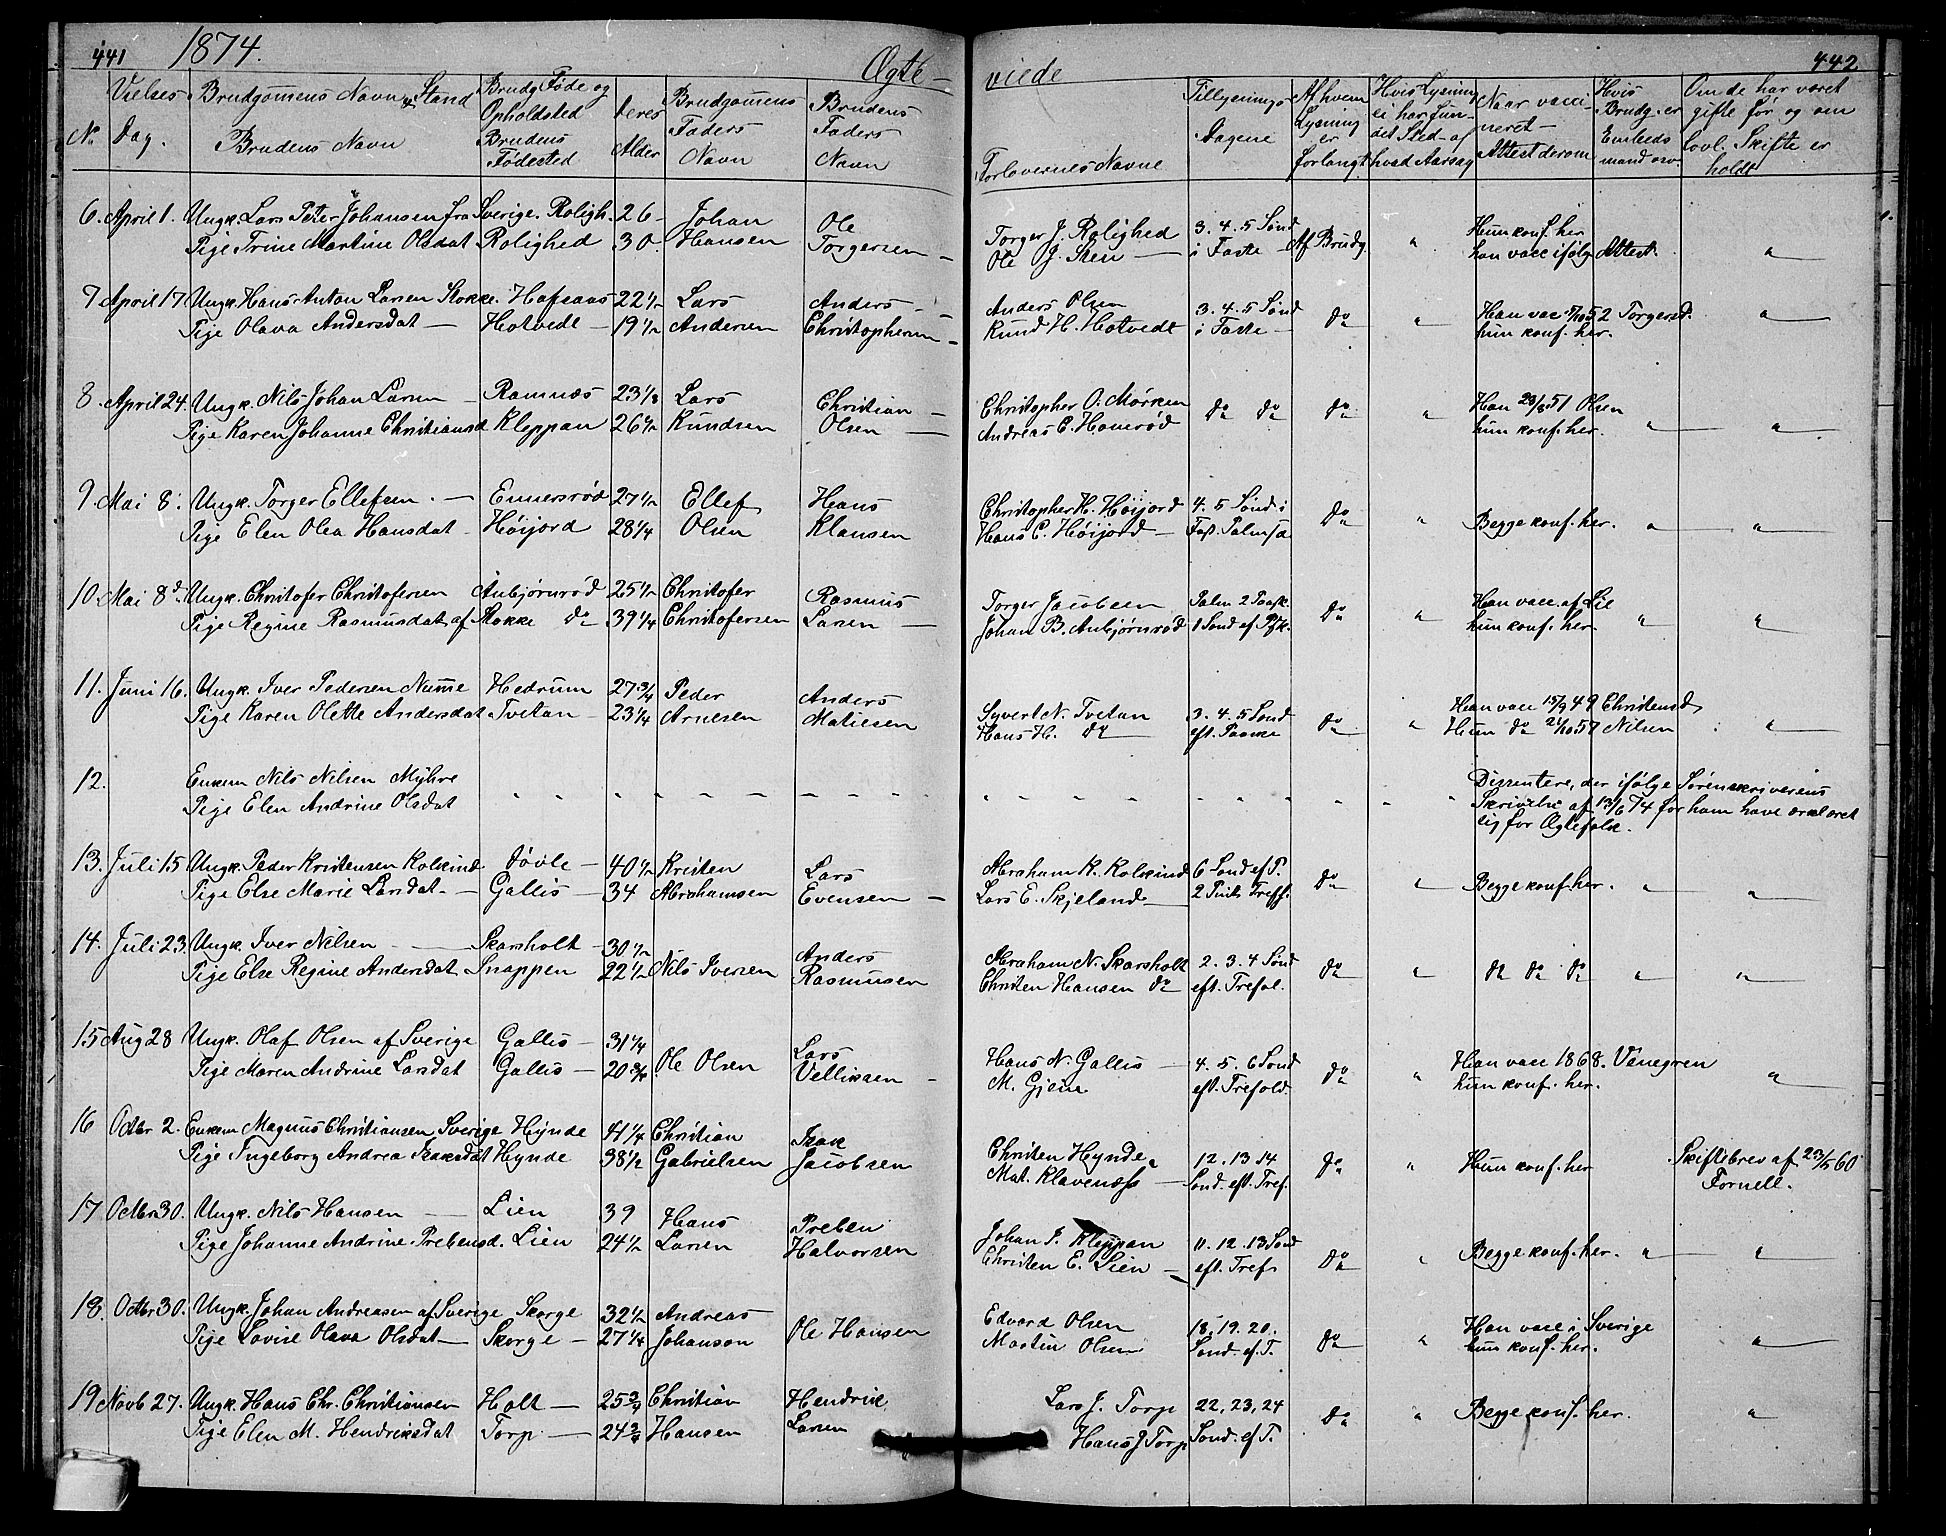 441 1874. Ægte- viede 442
No Vielses Dag. Brudgomens Navn & Stand Brudens Navn Brudg Føde og Opholdsted Brudens Fødested deres Alder Brudgomens Faders Navn Brudens Faders Navn Forlovernes Navne Tillysnings Dagene Af hvem Lysning er forlangt Hvis Lysning ei har fundet Sted af hvad Aarsag Naar vaccineret Attest derom Hvis Brudg. er Embedsmand Om de har været gifte før og om lovl. Skifte er holdt
6. April 1. Ungk. Lars Peter Johansen fra Sverige. Roligh. 26 Johan Ole Torger J. Rolighed 3. 4. 5 Sønd Hun konf. her
Pige Trine Martine Olsdat Rolighed 30 Hansen Torgersen Ole J. Sten i Faste Af Brudg. " han vacc ifølg Attest. "
7 April 17 Ungk. Hans Anton Larsen Stokke. Hafsaas 22 1/2 Lars Anders Anders Olsen 3. 4. 5 Sønd Han vacc 52 Torgersd.
Pige Olava Andersdat Hotvedt 19 1/2 Andersen Christophersen Knud H. Hotvedt i Faste do " hun konf. her. "
8. April 24. Ungk. Nils Johan Larsen Ramnæs 23 1/8 Lars Christian Christopher O. Mørken do do do Han 23/8 51 Olsen
Pige Karen Johanne Christiansd Kleppan 26 1/2 Knudsen Olsen Andreas C. Haverød " hun konf. her. " "
9 Mai 8. Ungk. Torger Ellefsen Ennersrød 27 1/2 Ellef Hans Christopher H. Høijord 4. 5 Sønd i
Pige Elen Olea Hansdat Høijord 28 1/4 Olsen Klausen Hans C. Høijord Fas. Palmsø do " Begge konf. her. " "
10. Mai 8d. Ungk. Christofer Christofersen Aubjørnrød 25 1/2 Christofer Rasmus Torger Jacobsen Palm 2 Paask. Han vacc. af Lie
Pige Regine Rasmusdat af Stokke do 39 1/4 Christofersen Larsen Johan B. Aubjørnrød 1 Sønd ef Psk. do " hun konf. her. " "
11. Juni 16. Ungk. Iver Pedersen Nume Hedrum 27 3/4 Peder Anders Syvert N. Tvetan 3. 4. 5 Sønd Han vacc 15/9 49 Christensd
Pige Karen Olette Andersdat Tvetan 23 1/4 Arnesen Matiesen Hans H. do eft. Paaske do " Hun do 21/10 57 Nilsen "
12. Enkem Nils Nilsen Myhre Dissentere, der ifølge Sørenskriverens
Pige Elen Andrine Olsdat Skrivelse af 13/6 74 for ham have erklæret
sig for Ægtefolk.
13. Juli 15 Ungk. Peder Kristensen Kolkind Døvle 40 1/2 Kristen Lars Abraham K. Kolkind 6 Sønd ef P.
Pige Else Marie Larsdat Gallis 34 Abrahamsen Evensen Lars E. Skjeland 2 Pints Treff. do " Begge konf. her. " "
14. Juli 23. Ungk. Iver Nilsen Skarsholt 30 1/2 Nils Iversen Anders Abraham N. Skarsholt 2. 3. 4 Sønd
Pige Else Regine Andersdat Snappen 22 1/2 Rasmusen Christen Hansen do eft. Trefol. do " do do do " "
15 Aug 28 Ungk. Olaf Olsen af Sverige Gallis 31 1/4 Ole Olsen Lars Hans N. Gallis 4. 5. 6 Sønd Han vacc 1868. Vanegren
Pige Maren Andrine Larsdat Gallis 20 3/4 Velliksen M. Gjein eft. Trefold. do " hun konf. her. "
16 Octbr 2. Enkem Magnus Christiansen Sverige Hynde 41 1/4 Christian Isak Christen Hynde 12. 13 14 Skiftebrev af 23/5 60
Pige Ingeborg Andrea Isaksdat Hynde 38 1/2 Gabrielsen Jacobsen Mat. Klavenæss Sønd. eft. Tref. do " Hun konf. her Fornell.
17 Octbr 30. Ungk. Nils Hansen Lien 39 Hans Preben Johan I. Kleppan 11. 12. 13 Sønd
Pige Johanne Andrine Prebensd. Lien 24 1/2 Larsen Halvorsen Christen E. Lien eft. Tref. do " Begge konf. her. " "
18. Octbr 30. Ungk. Johan Andreasen af Sverige Skorge 32 1/2 Andreas Ole Hansen Edvard Olsen 18. 19. 20. Han vacc i Sverige
Pige Lovise Olava Olsdat Skorge 27 1/4 Johanson Martin Olsen Sønd. ef. T. do " hun konf. her. "
19 Novb 27. Ungk. Hans Chr. Christiansen Holt 25 3/4 Christian Hendrik Lars J. Torp 22, 23, 24
Pige Elen M. Hendriksdat Torp 24 3/4 Hansen Larsen Hans J Torp Sond. ef T. do " Begge konf. her. "